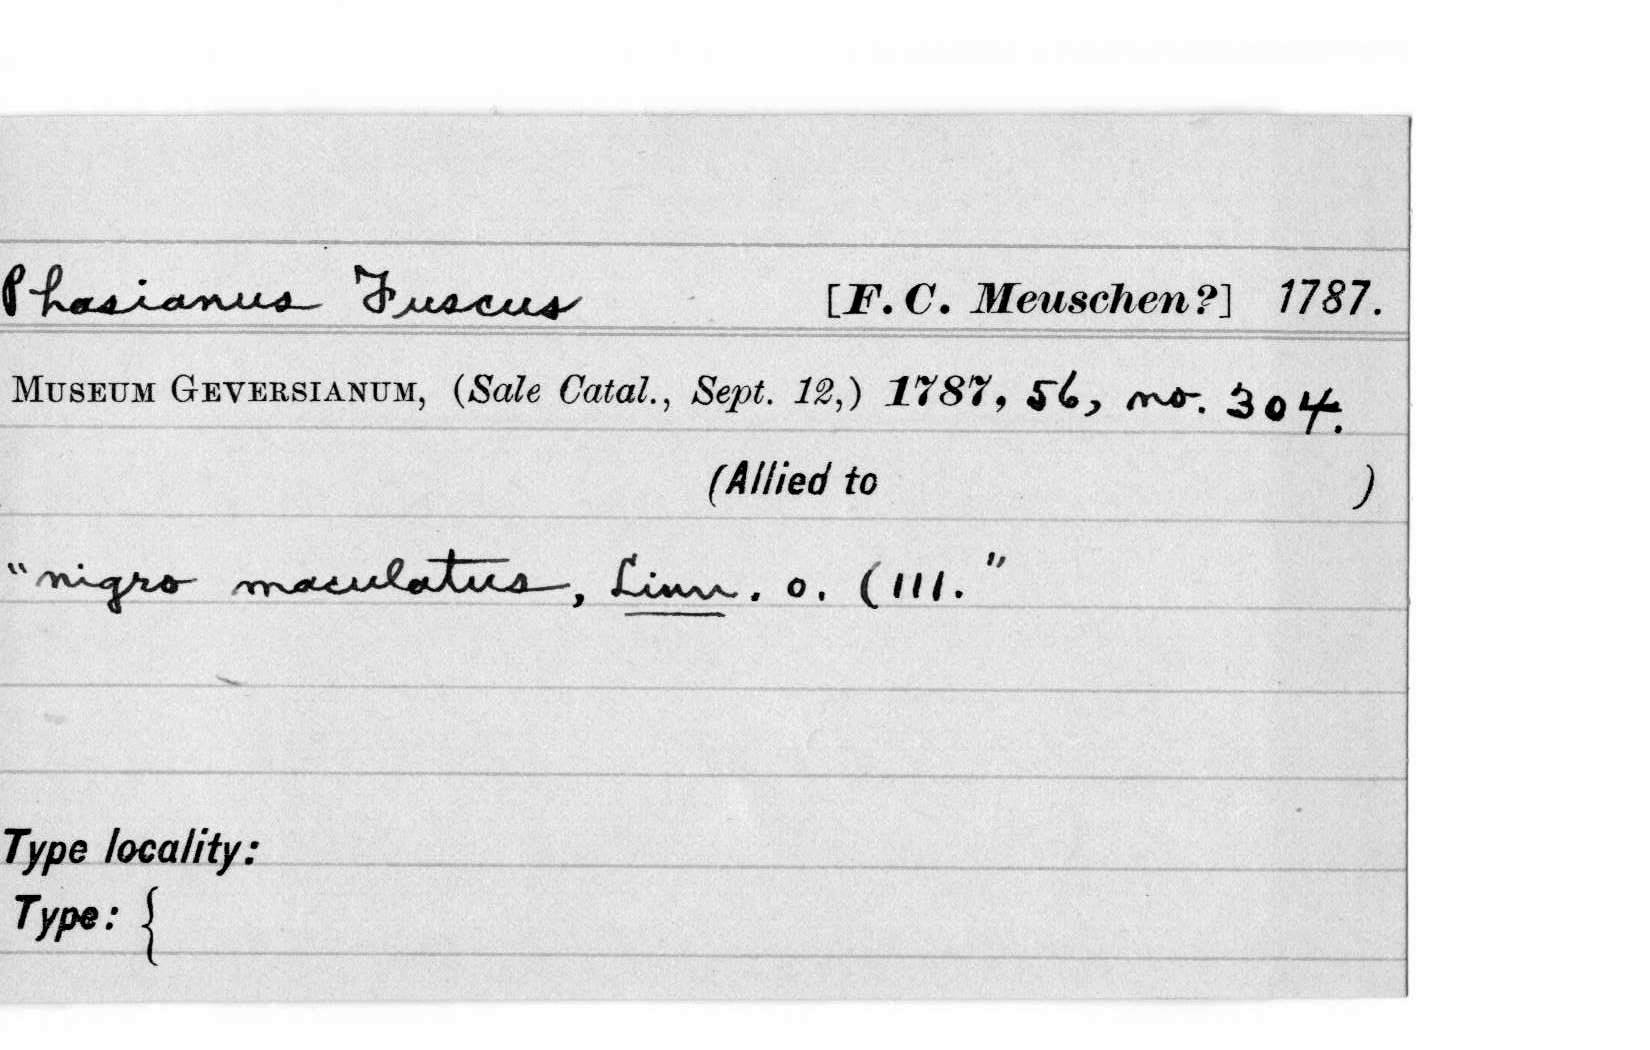 Phasianus Fuscus [F. C. Meuschen?] 1787.
Museum Geversianum, (Sale Catal., Sept. 12,) 1787, 56, no. 304.
(Allied to )
"nigro maculatus, Linn. o. (111."
Type locality:
Type: {